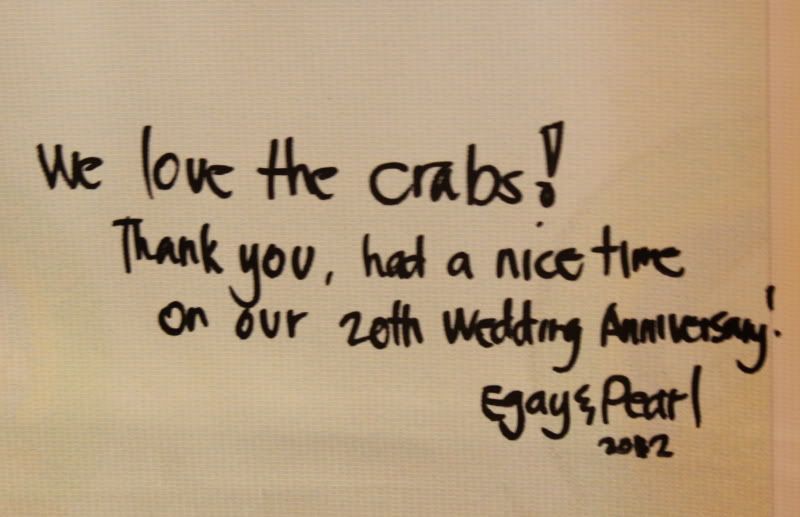 We love the crabs!
Thank you, had a nice time
on our 20th Wedding Anniversary!
Egay & Pearl
2012